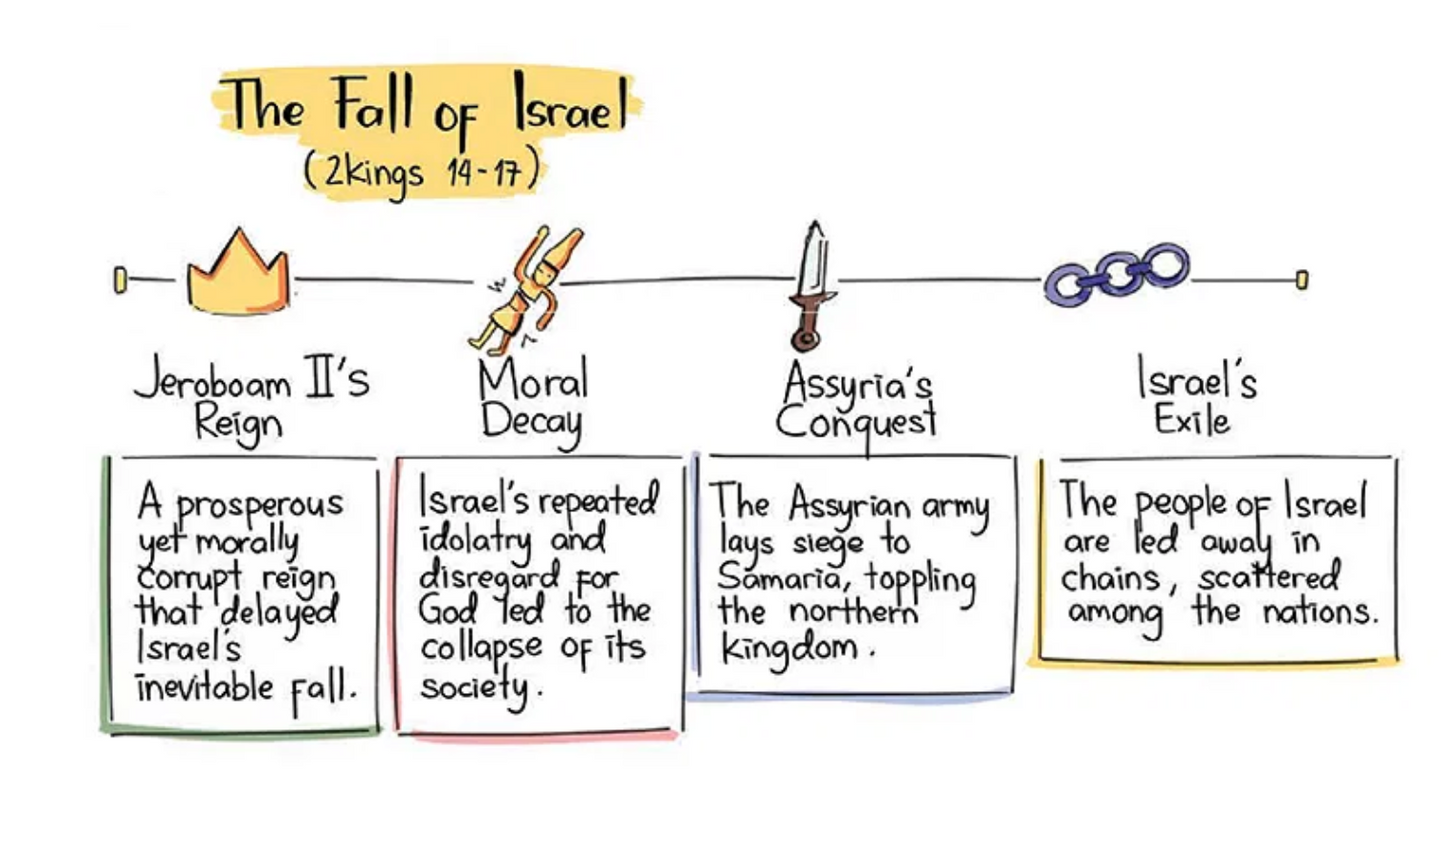 The Fall of Israel
(2kings 14-17)
Jeroboam II's
Reign
A prosperous
yet morally
corrupt reign
that delayed
Israel's
inevitable fall.
Moral
Decay
Israel's repeated
idolatry and
disregard for
God led to the
collapse of its
society.
Assyria's
Conquest
The Assyrian army
lays siege to
Samaria, toppling
the northern
kingdom.
Israel's
Exile
The people of Israel
are led away in
chains, scattered
among the nations.